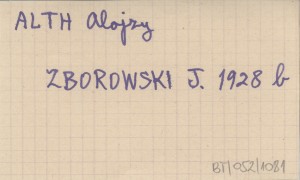 ALTH Alojzy
ZBOROWSKI J. 1928 b
BT/052/1081